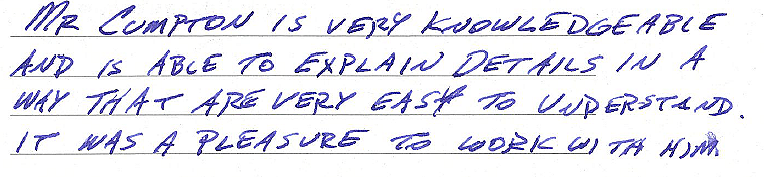 MR CUMPTON IS VERY KNOWLEDGEABLE
AND IS ABLE TO EXPLAIN DETAILS IN A
WAY THAT ARE VERY EASY TO UNDERSTAND.
IT WAS A PLEASURE TO WORK WITH HIM